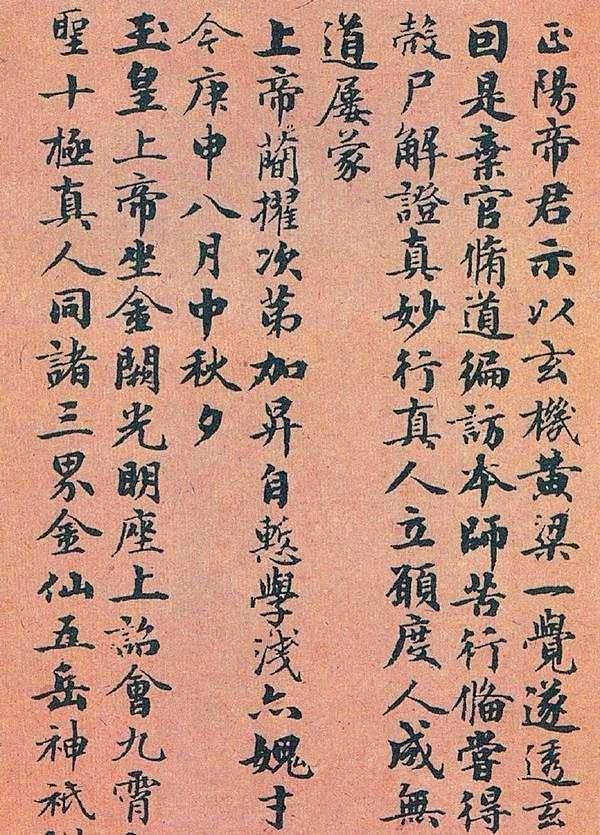 正陽帝君示以玄機黃梁一覺遂透玄
回是棄官脩道編訪本師苦行俻嘗得
殼尸解證真妙行真人立願度人成無
道屢蒙
上帝蘭擢次第加昇自慙學淺亦媿才
今庚申八月中秋夕
玉皇上帝坐金闕光明座上詔會九霄
聖十極真人同諸三界金仙五岳神祇